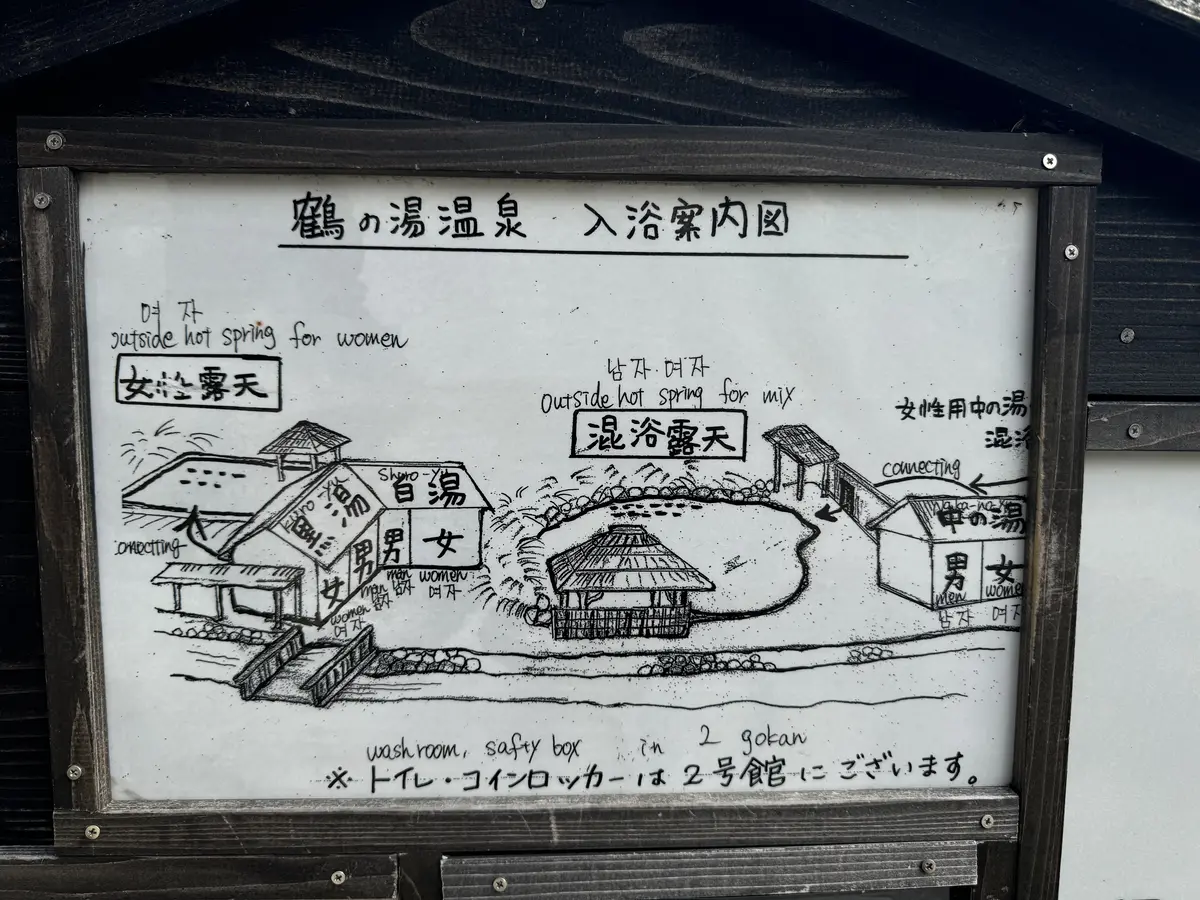 鶴の湯温泉 入浴案内図
여자
outside hot spring for women
女性露天
남자.여자
Outside hot spring for mix
混浴露天
女性用中の湯
混浴
connecting
Shiro-Y
白湯
Kuro
黒湯
男 女
men women
남자 여자
男
men
남자
女
women
여자
connecting
中の湯
男 女
men women
남자 여자
washroom, safty box in 2 gokan
※トイレ・コインロッカーは2号館にございます。